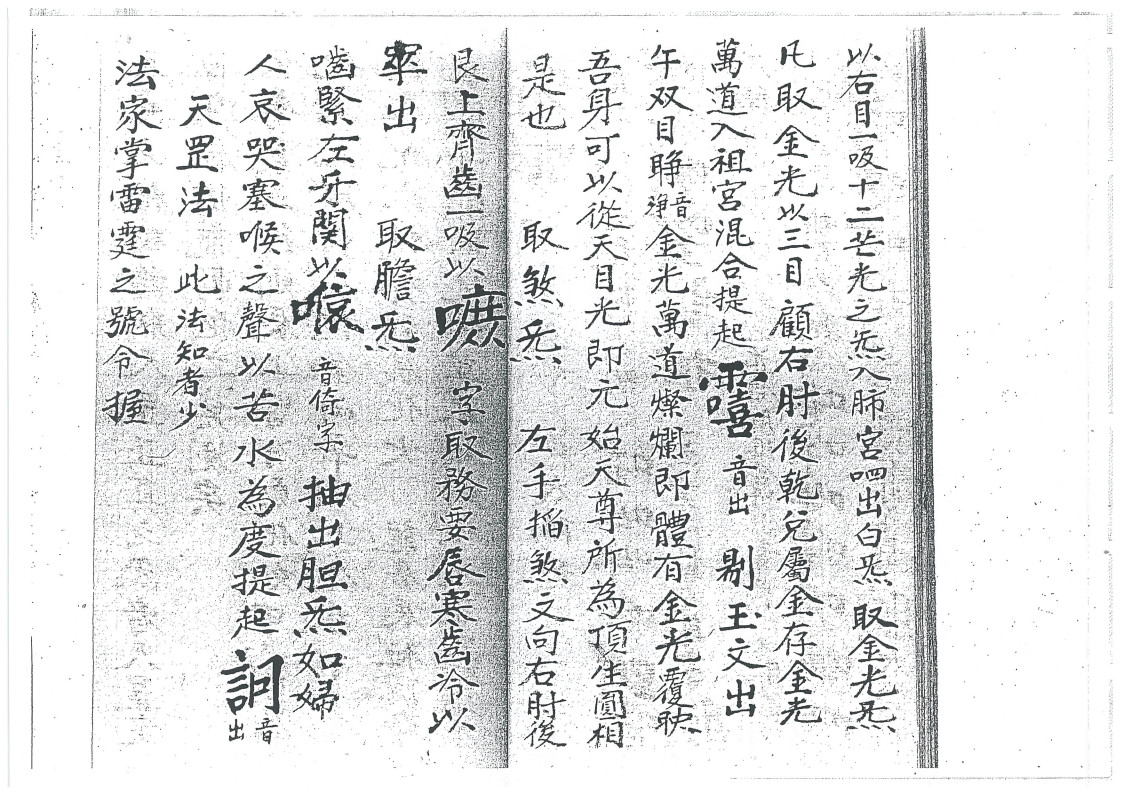 以右目一吸十二芒光之炁入肺宮呬出白炁　取金光炁
凡取金光以三目顧右肘後乾兌屬金存金光
萬道入祖宮混合提起𩆸音出　剔玉文出
午双目睜音淨金光萬道燦爛即體有金光覆映
吾身可以從天目光即元始天尊所為頂生圓相
是也　取煞炁　左手搯煞文向右肘後
艮上齊齒一吸以嚬字取務要唇寒齒冷以
出　取膽炁
嚙緊左牙関以音倚字　抽出胆炁如婦
人哀哭塞喉之聲以苦水為度提起訶音出
天罡法　此法知者少
法家掌雷霆之號令握